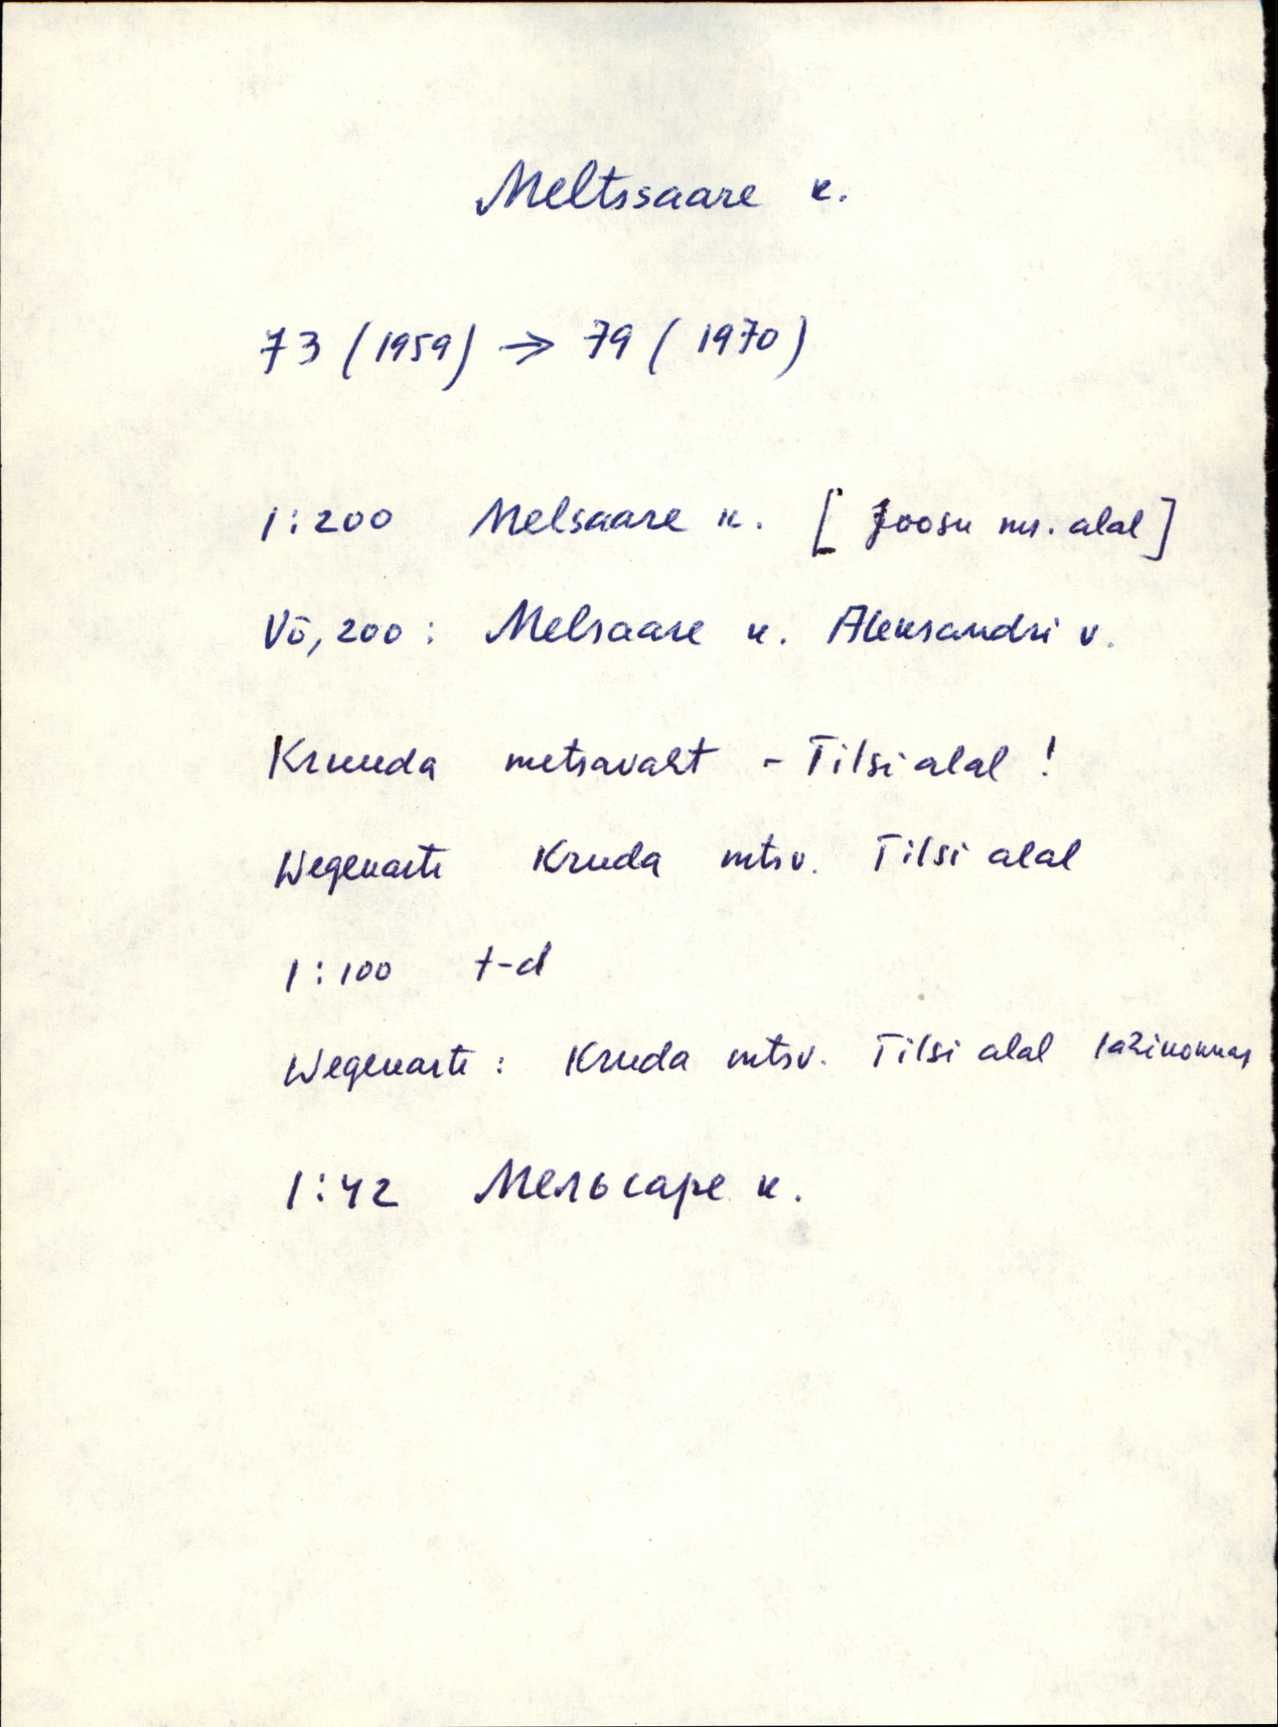 Meltssaare k.
73 (1959) → 79 (1970)
1:200 Melsaare k. [Joosu ms. alal]
Võ, 200: Melsaare k. Aleksandri v.
Kruuda metsavaht - Tilsi alal!
Kruda mtsv. Tilsi alal
1:100 t-d
Kruda mtsv. Tilsi alal
1:42 Мельсаре k.